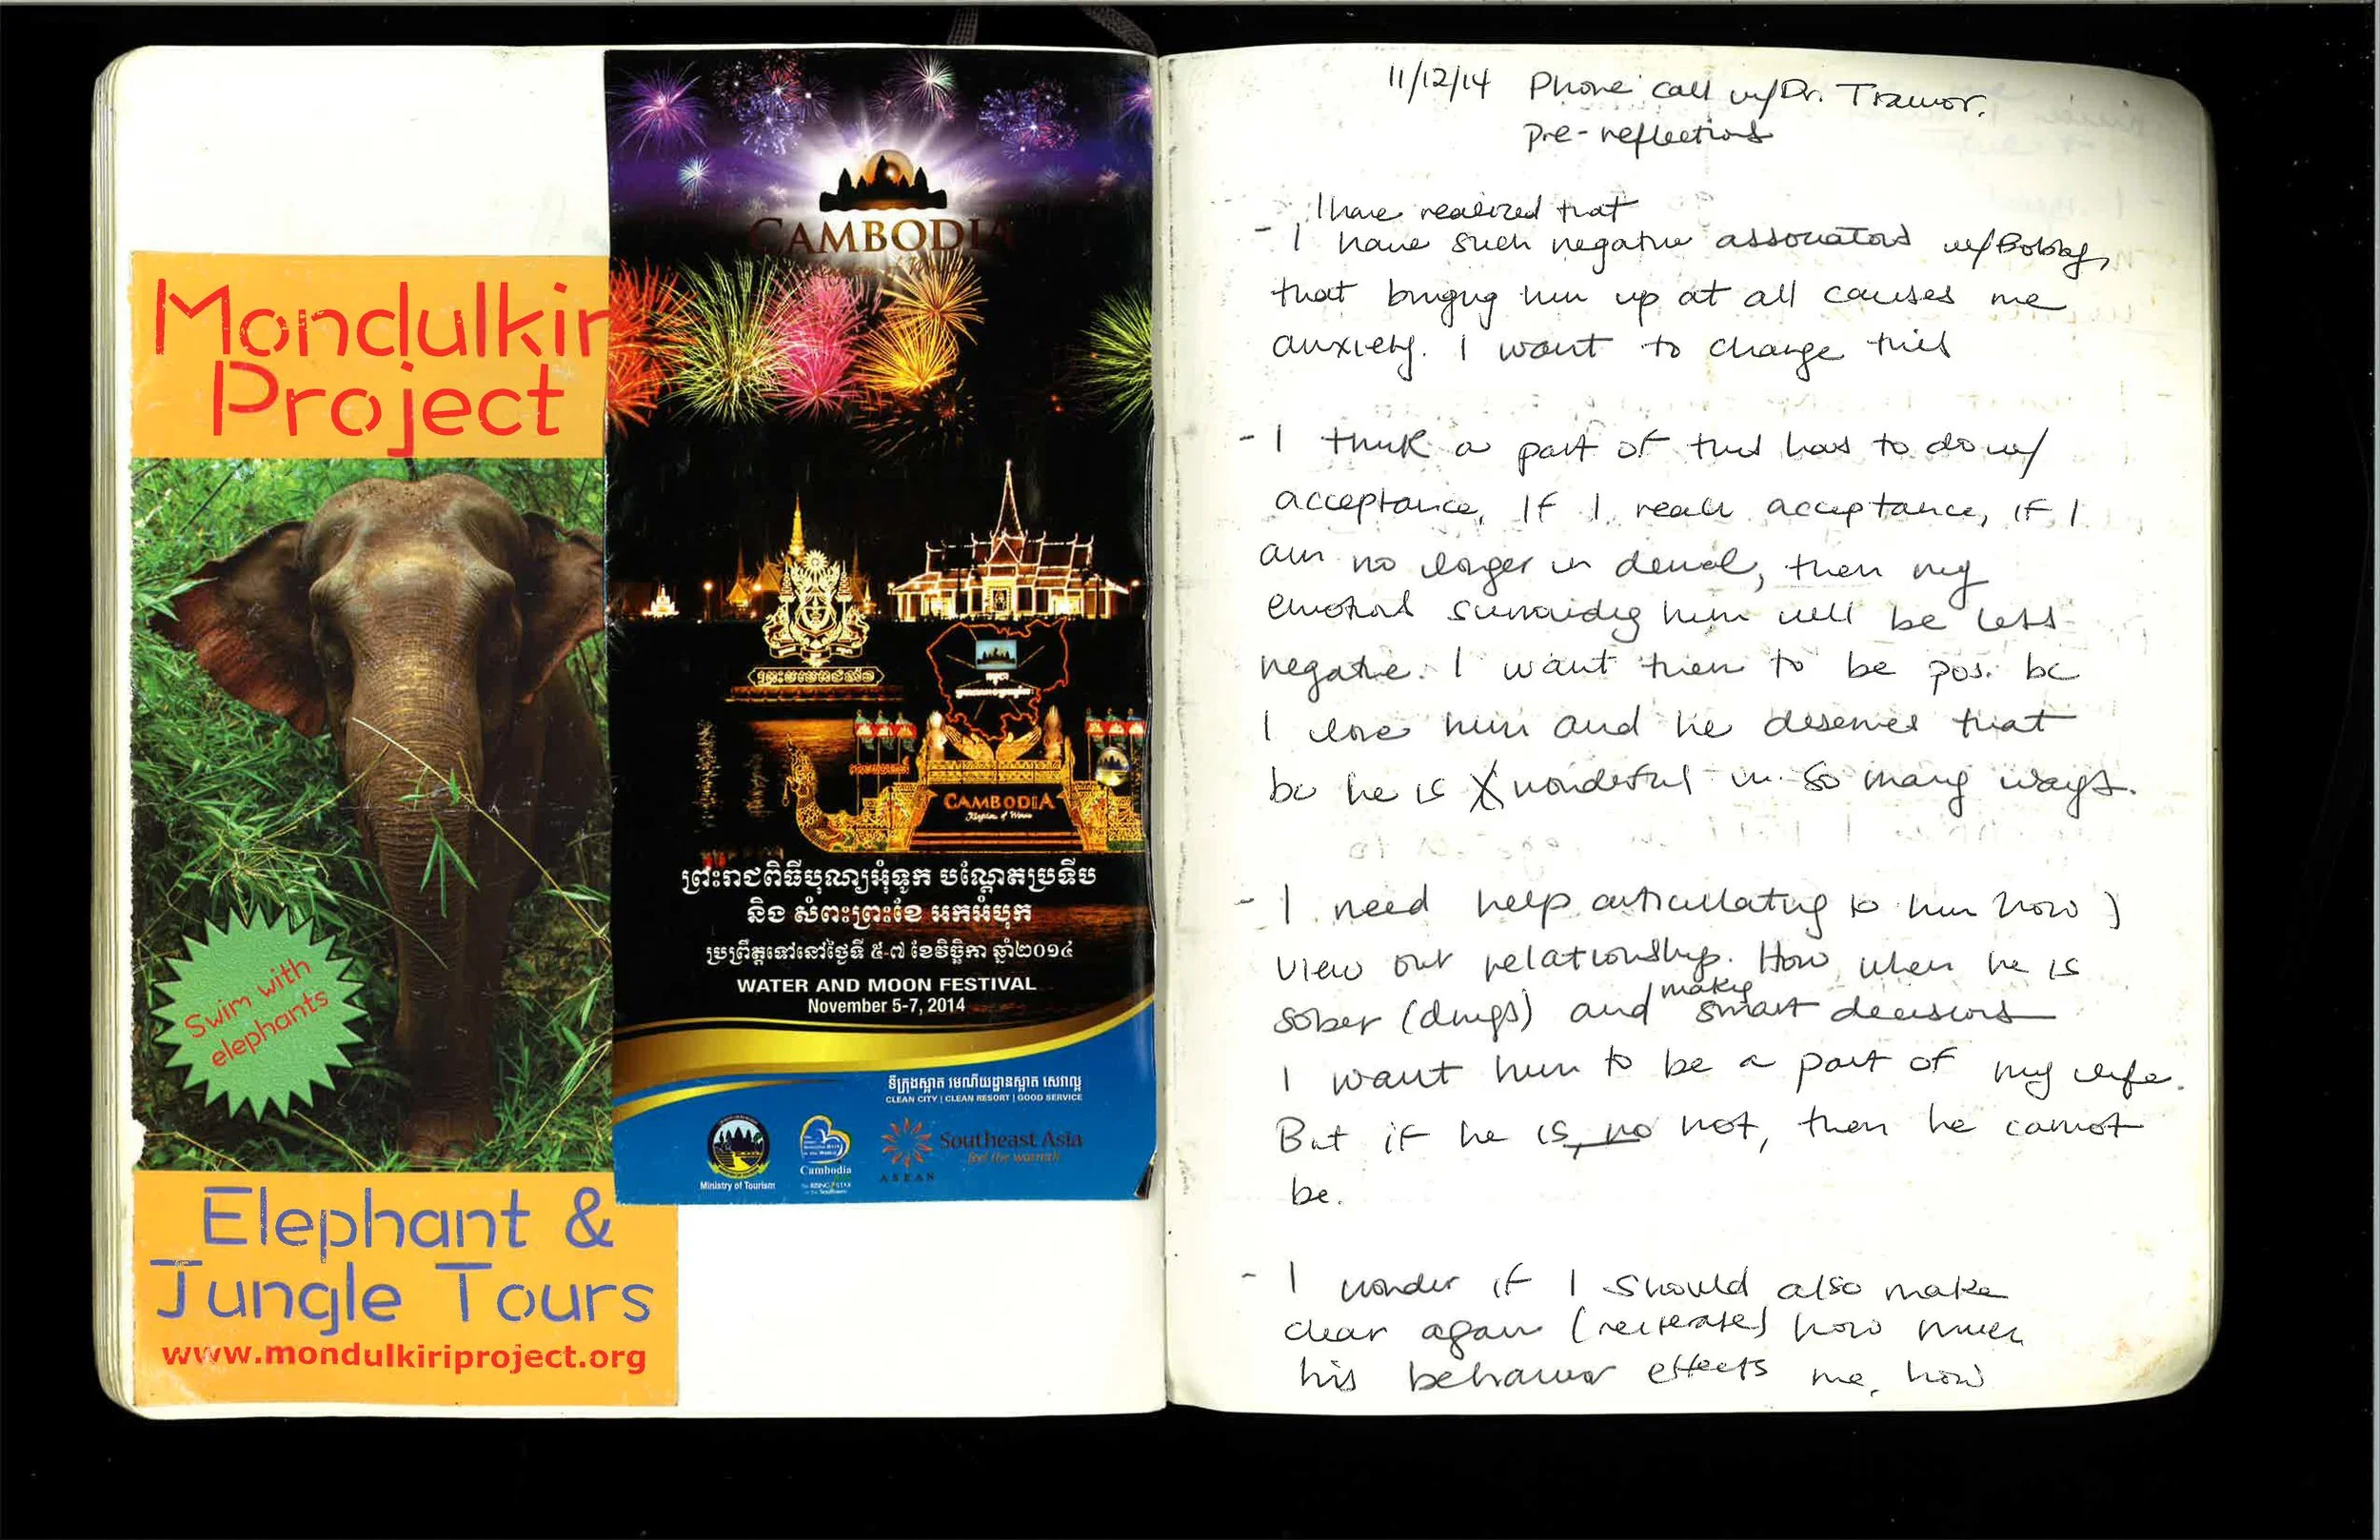 Mondulkir
Project
Swim with
elephants
Elephant &
Jungle Tours
www.mondulkiriproject.org
CAMBODIA
CAMBODIA
Kingdom of Wonder
ព្រះរាជពិធីបុណ្យអុំទូក បណ្តែតប្រទីប
និង សំពះព្រះខែ អកអំបុក
ប្រព្រឹត្តទៅនៅថ្ងៃទី ៥-៧ ខែវិច្ឆិកា ឆ្នាំ២០១៤
WATER AND MOON FESTIVAL
November 5-7, 2014
ទីក្រុងស្អាត រមណីយដ្ឋានស្អាត សេវាល្អ
CLEAN CITY | CLEAN RESORT | GOOD SERVICE
Ministry of Tourism
Cambodia
ASEAN
Southeast Asia
feel the warmth
11/12/14 Phone call w/Dr.
pre-reflections
I have realized that
- I have such negative associations w/Bobby,
that bringing him up at all causes me
anxiety. I want to change this
- I think a part of this has to do w/
acceptance. If I reach acceptance, if I
am no longer in denial, then my
emotions surrounding him will be less
negative. I want them to be pos. bc
I love him and he deserves that
bc he is wonderful in so many ways.
- I need help articulating to him how I
view our relationship. How when he is
sober (drugs) and making smart decisions
I want him to be a part of my life.
But if he is, no not, then he cannot
be.
- I wonder if I should also make
clear again (reiterate) how much
his behavior effects me, how